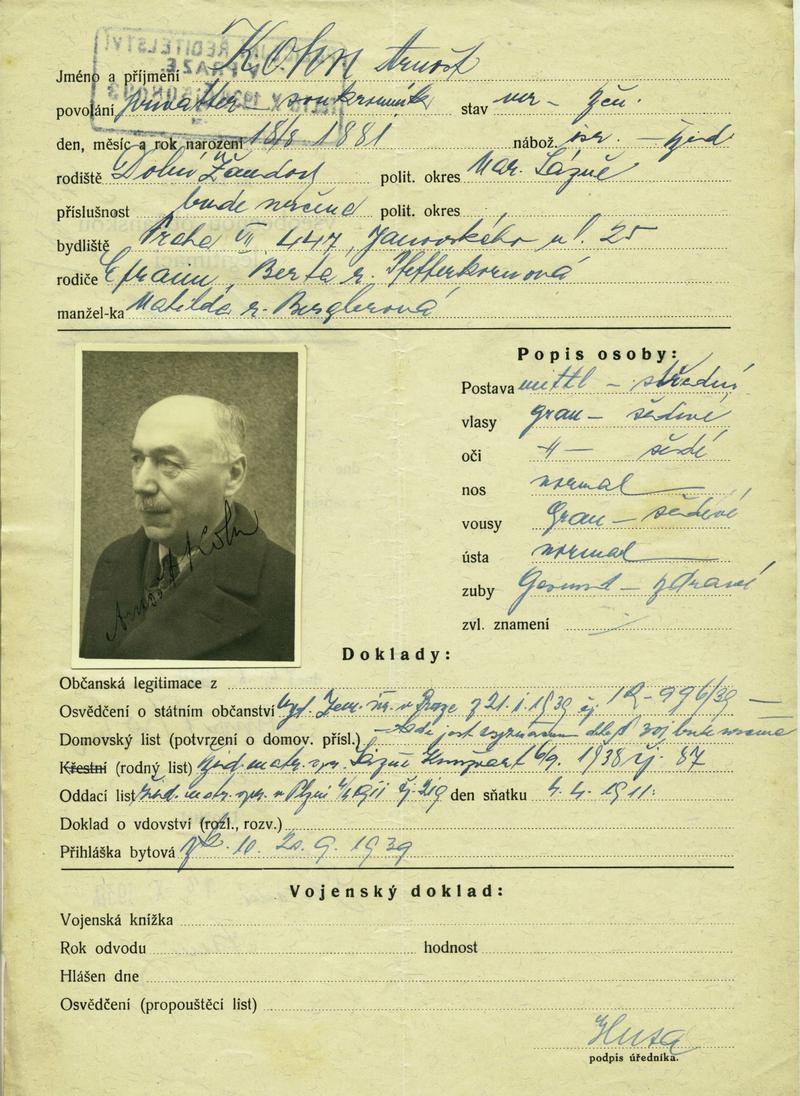 Jméno a příjmení KOHN Arnošt
povolání privatier – soukromník stav ver – žen.
den, měsíc a rok narození 18/8 1881 nábož. isr. – žid
rodiště Dolní Žandov polit. okres Mar. Lázně
příslušnost bude určena polit. okres
bydliště Praha VII 447, Janovského ul. 25
rodiče Efraim, Berta r. Pfefferkornová
manžel-ka Matilda r. Berglerová
Popis osoby:
Postava mittl – střední
vlasy grau – šedivé
oči –"– šedé
nos normal
vousy Grau – šedivé
ústa normal
zuby Gesund – zdravé
zvl. znamení
Arnošt Kohn
Doklady:
Občanská legitimace z
Osvědčení o státním občanství vyd. Zem. úř. v Praze z 21.1.1939 čj. 12-996/39 –
Domovský list (potvrzení o domov. přísl.)
Křestní (rodný list) žid. matr. Lázně Kynžvart 6/9. 1938 čj. 87
Oddací list žid. matr. v Plzni čj. 219 den sňatku 4. 4. 1911.
Doklad o vdovství (rozl., rozv.)
Přihláška bytová 20. 9. 1939
Vojenský doklad:
Vojenská knížka
Rok odvodu hodnost
Hlášen dne
Osvědčení (propouštěcí list)
Husa
podpis úředníka.